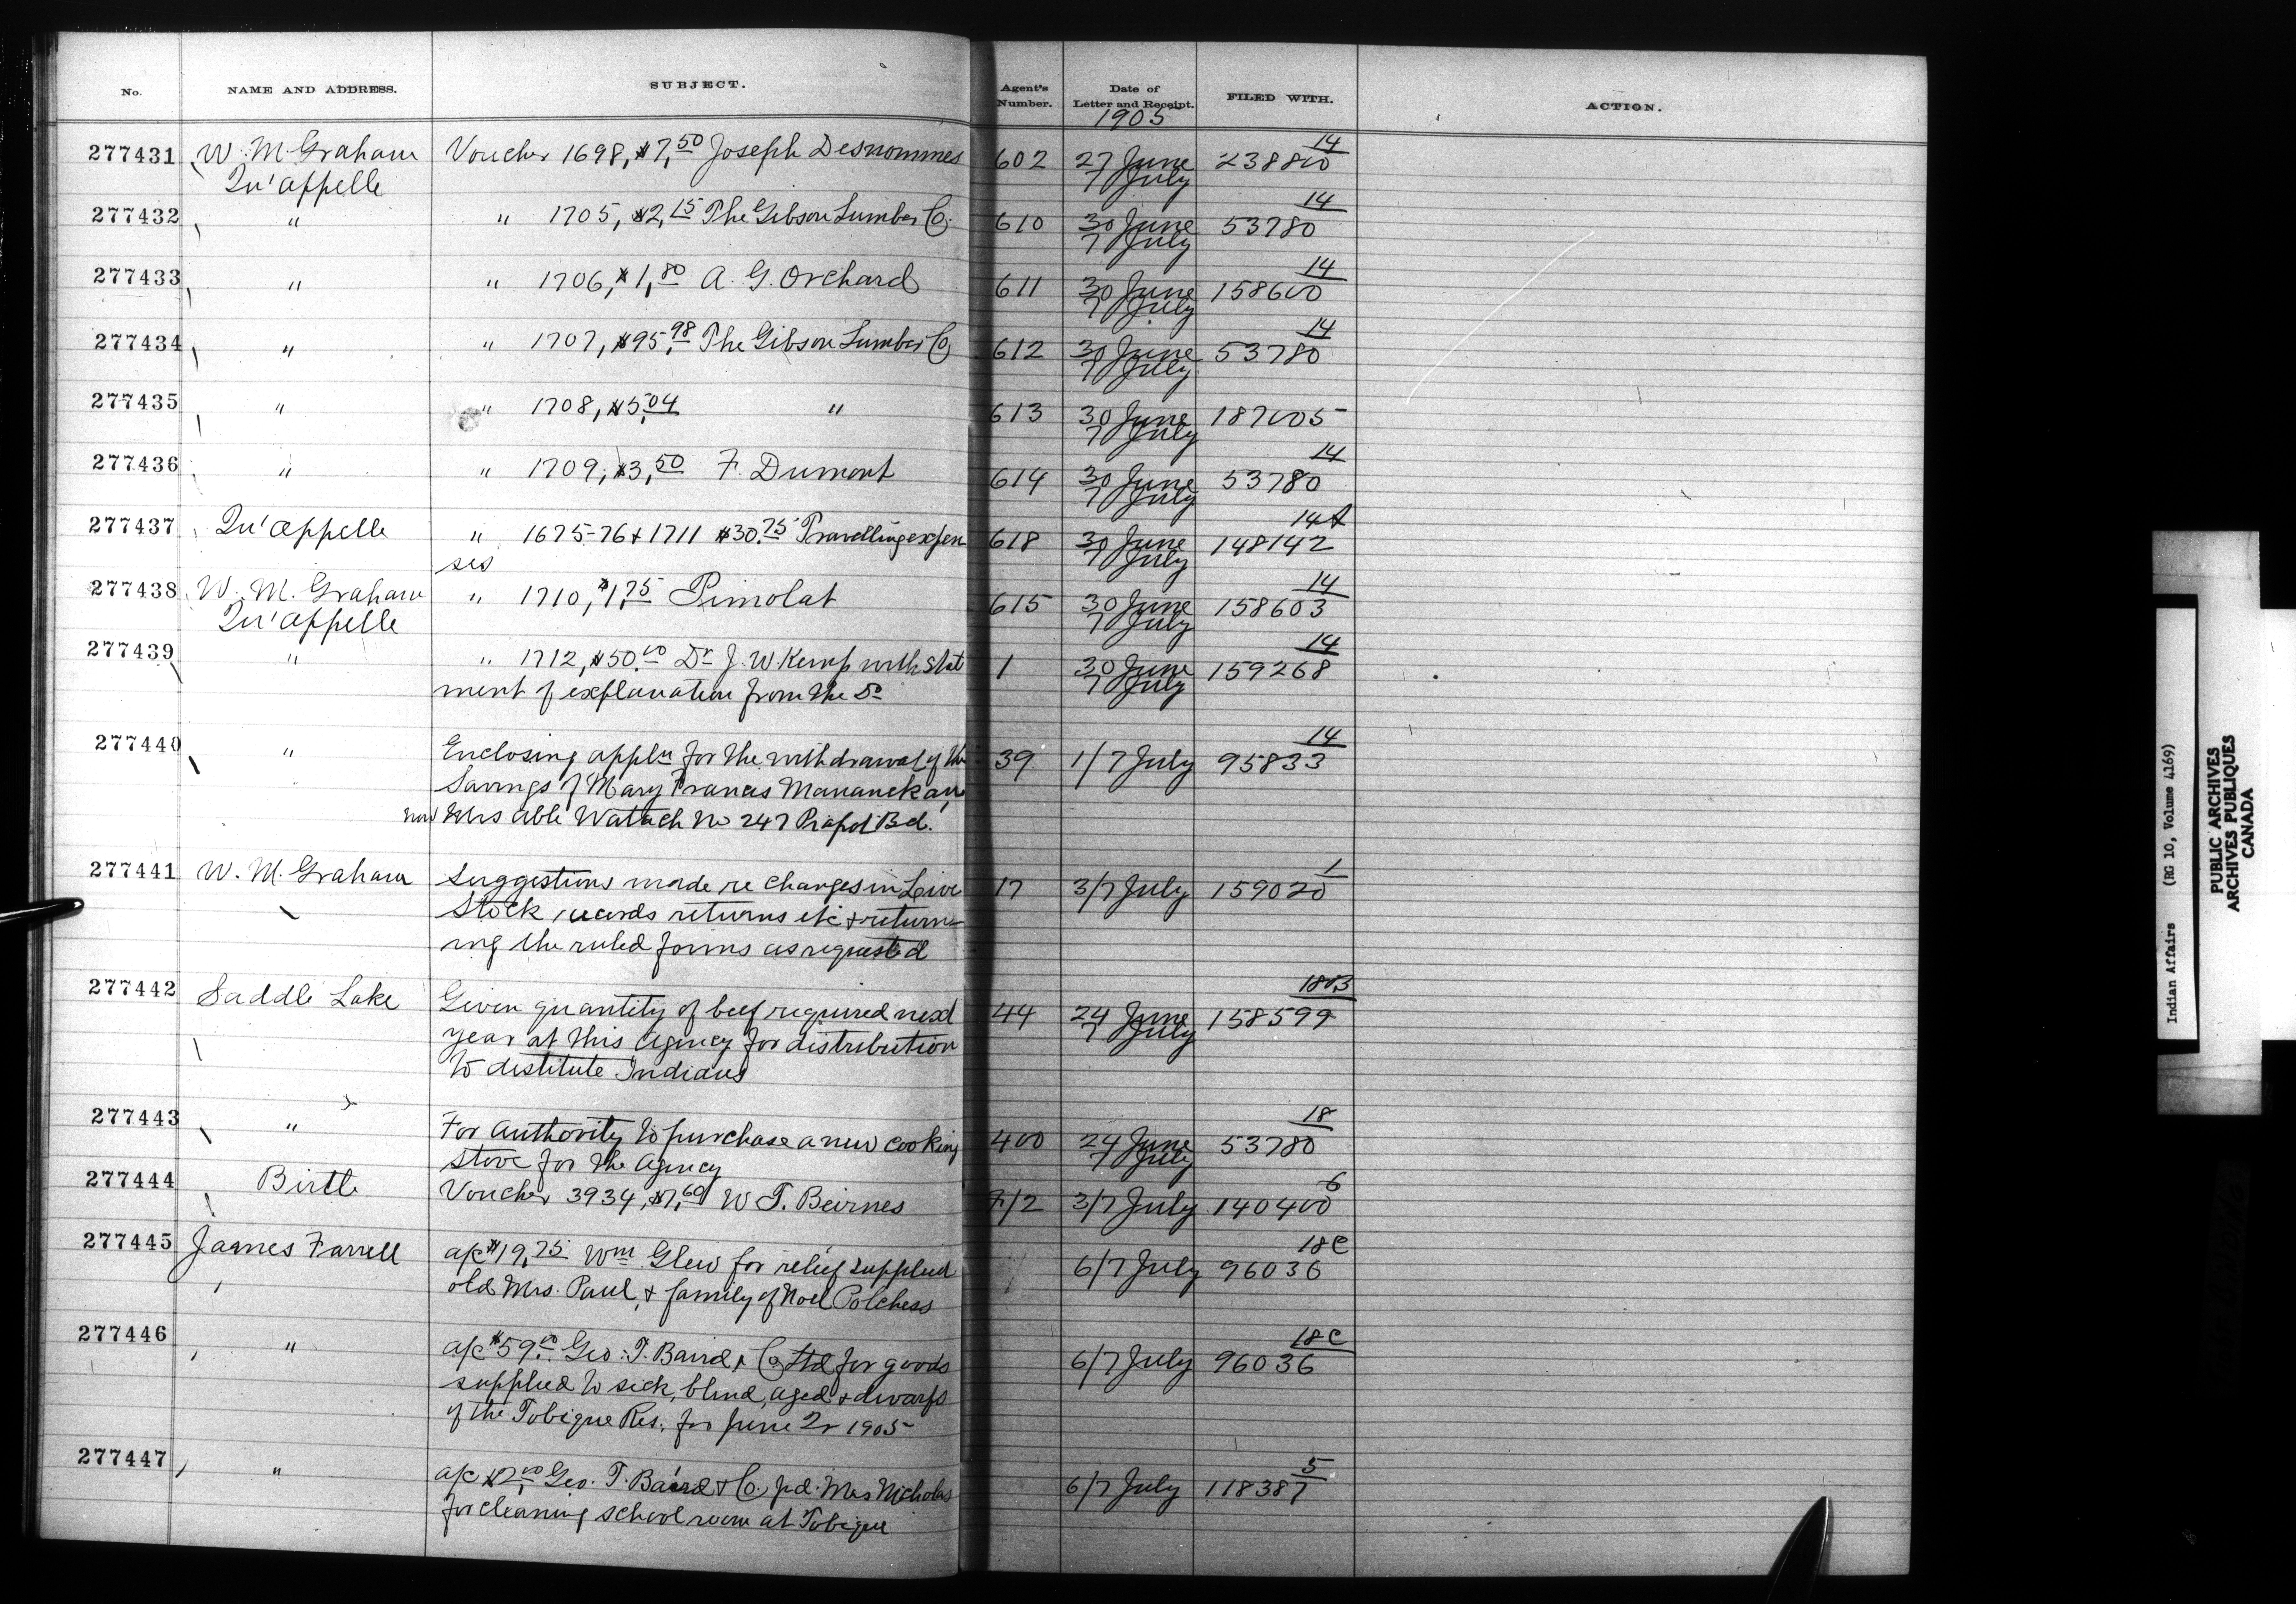 No. NAME AND ADDRESS. SUBJECT. Agent's Number. Date of Letter and Receipt. FILED WITH. ACTION.
1905
277431 W. M. Graham Voucher 1698, $7,50 Joseph Desnommes 602 27 June 238800 14
Qu'appelle 7 July
277432 " " 1705, $2,15 The Gibson Lumber Co. 610 30 June 53780 14
7 July
277433 " " 1706, $1,80 A. G. Orchard 611 30 June 158600 14
7 July
277434 " " 1707, $95,98 The Gibson Lumber Co 612 30 June 53780 14
7 July
277435 " " 1708, $5,04 " 613 30 June 187005
7 July
277436 " " 1709, $3,50 F. Dumont 614 30 June 53780 14
7 July
277437 Qu'appelle " 1675-76 + 1711 $30.75 Travelling expen 618 30 June 148142 14A
ses 7 July
277438 W. M. Graham " 1710, $1,75 Pimolat 615 30 June 158603 14
Qu'appelle 7 July
277439 " " 1712, $50.00 Dr J. W. Kemp with state 1 30 June 159268 14
ment of explanation from the Dr 7 July
277440 " Enclosing appln for the withdrawal of the 39 1/7 July 95833 14
Savings of Mary Francis
now Mrs Able Watach No 247 Piapot Bd.
277441 W. M. Graham Suggestions made re changes in Live 17 3/7 July 159020 1
Stock records returns etc + return-
ing the ruled forms as requested
277442 Saddle Lake Given quantity of beef required next 44 24 June 158599 18
year at this Agency for distribution 7 July
to destitute Indians
277443 " For Authority to purchase a new cooking 400 24 June 53780 18
stove for the Agency 7 July
277444 Birtle Voucher 3934, $7,60 W T. Beirnes 7/2 3/7 July 140400 6
277445 James Farrell a/c $19,75 Wm Glew for relief supplied 6/7 July 96036 18C
old Mrs. Paul, + family of Noel Polchess
277446 " a/c $59.00 Geo: T. Baird + Co Ltd for goods 6/7 July 96036 18C
supplied to sick, blind, aged + dwarfs
of the Tobique Res. for June Qr 1905
277447 " a/c $2,00 Geo. T. Baird + Co. pd. Mrs Nicholas 6/7 July 118387 5
for cleaning school room at Tobique
Indian Affairs (RG 10, Volume 4169)
PUBLIC ARCHIVES
ARCHIVES PUBLIQUES
CANADA